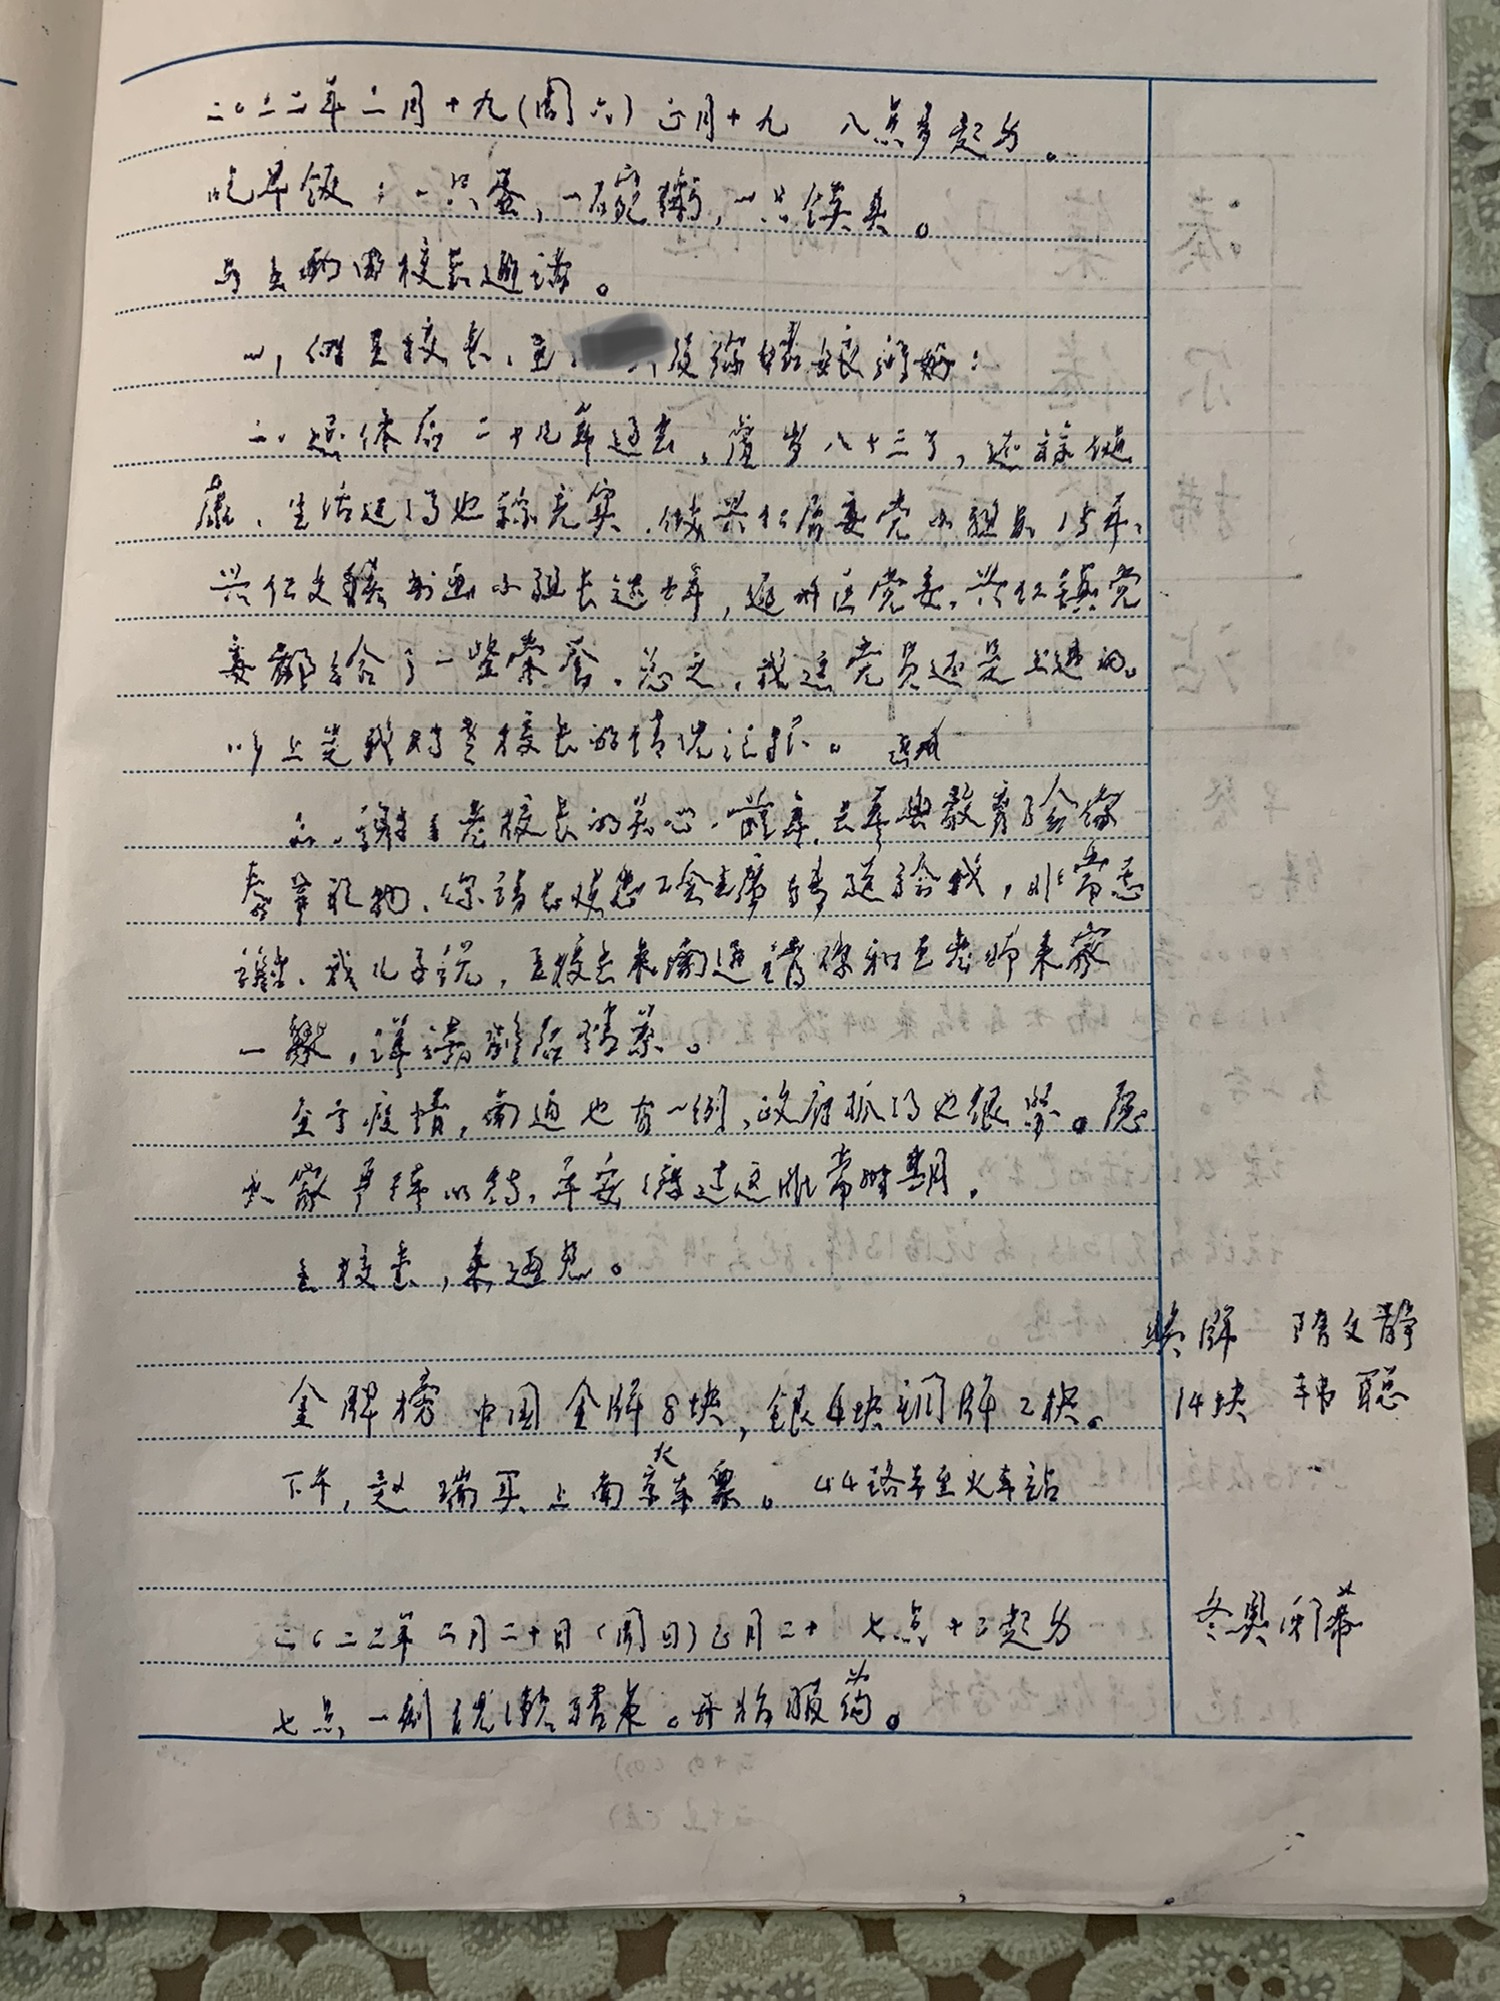 二〇二二年二月十九(周六) 正月十九 八点多起身。
吃早饭：一只蛋，一碗粥，一只馍头。
与王校长通话。
一、你王校长、王 及你姑娘们好：
二、退休后二十九年过去，虚岁八十三了，还算健
康、生活过得也算充实、做兴仁居委党小组长15年、
兴仁文艺书画小组长这些年，通州区党委、兴仁镇党
委都给了一些荣誉。总之，我这党员还是上进的。
以上是我对老校长的情况汇报。
三、谢谢老校长的关心。前年、去年县教育会给
春节礼物、你请工会主席转送给我，非常感
谢、我儿子说，王校长来南通请你和王老师来家
一聚，详请聚后请茶。
至于疫情，南通也有一例，政府抓得也很紧。愿
大家严阵以待，平安渡过这非常时期。
王校长，来通见。
奖牌 隋文静
金牌榜 中国金牌8块，银4块铜牌2块。 14块 韩聪
下午，赵瑞买上南京火车票。44路车至火车站
冬奥闭幕
二〇二二年二月二十日(周日)正月二十 七点十二起身
七点一刻 服药。